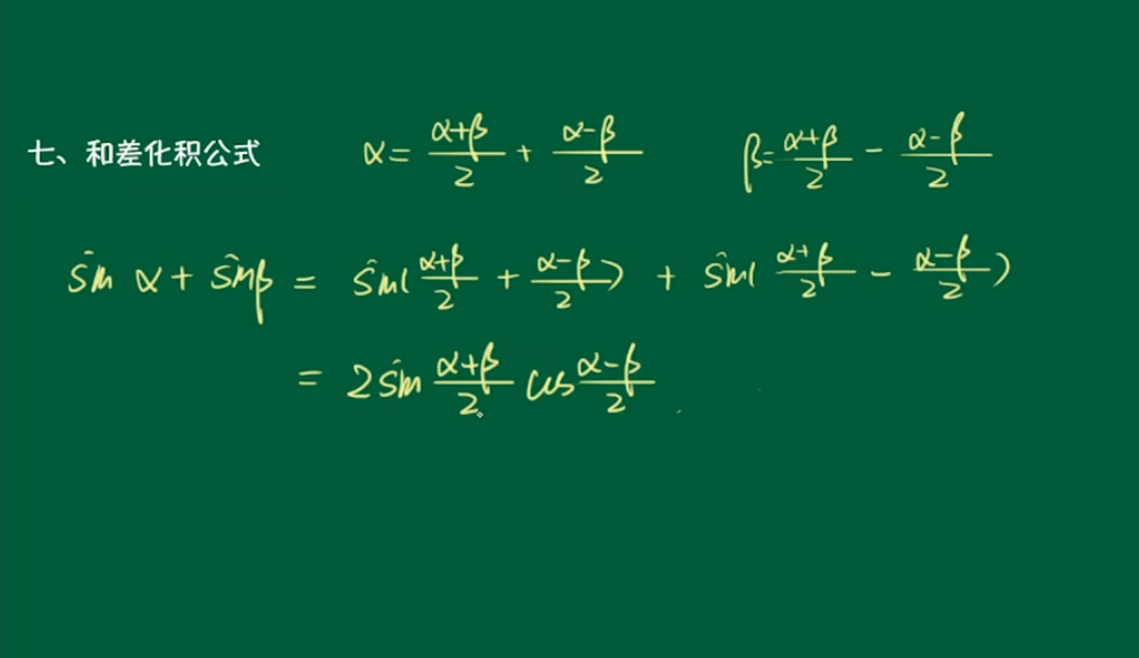 七、和差化积公式 α = (α+β)/2 + (α-β)/2 β = (α+β)/2 - (α-β)/2
sin α + sin β = sin((α+β)/2 + (α-β)/2) + sin((α+β)/2 - (α-β)/2)
= 2 sin (α+β)/2 cos (α-β)/2